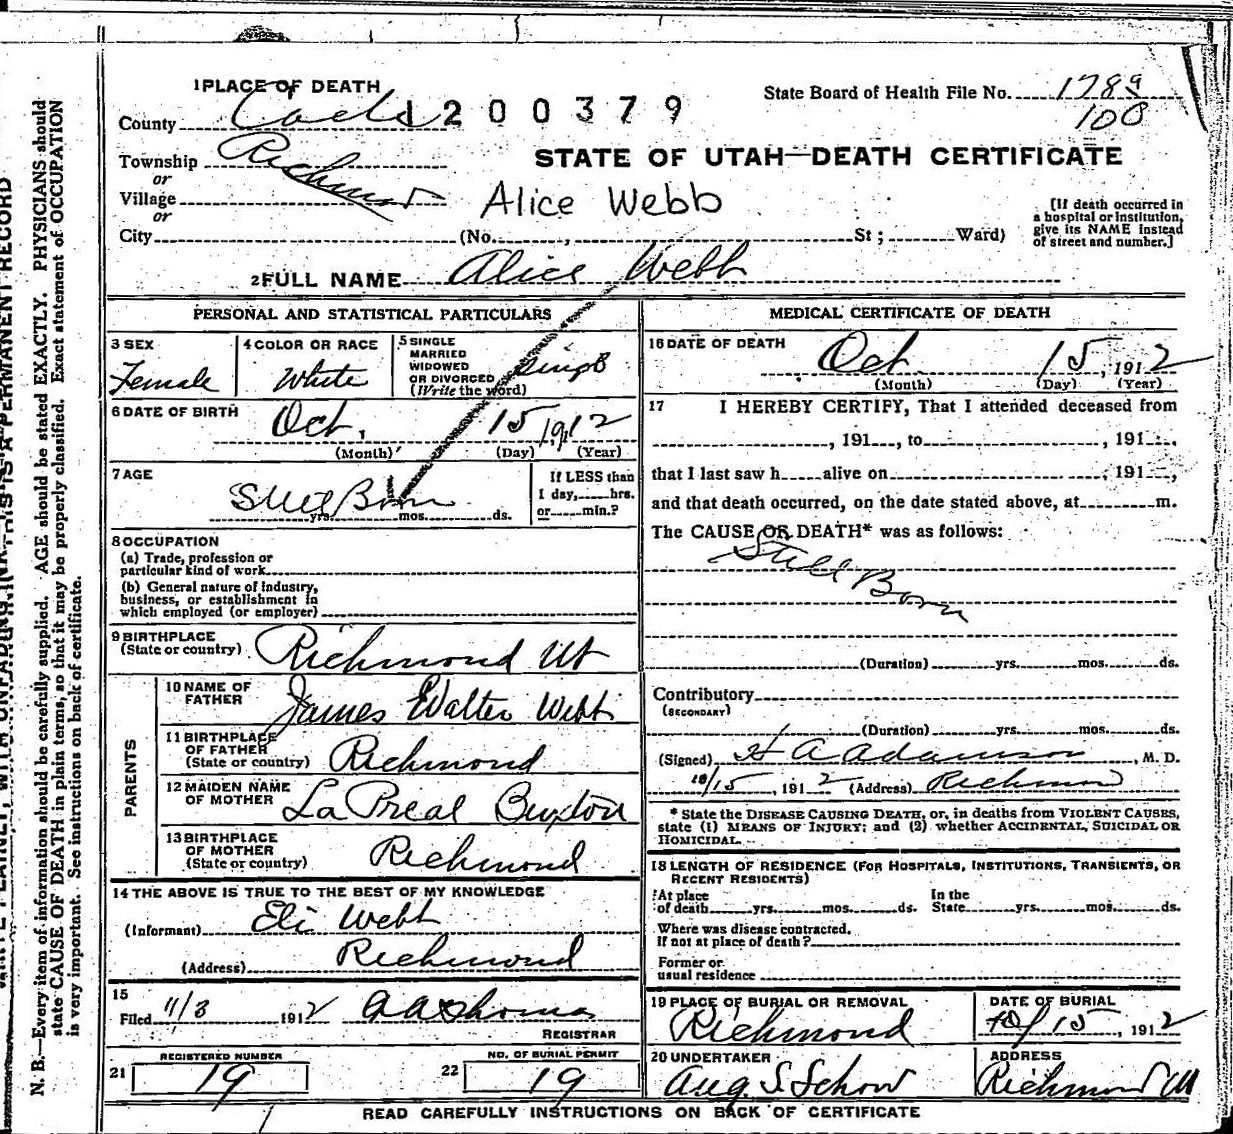 1 PLACE OF DEATH
State Board of Health File No. 1789
County Cache 1200379
108
Township Richmond
STATE OF UTAH—DEATH CERTIFICATE
or
Village
Alice Webb
or
City (No. , St ; Ward)
[If death occurred in
a hospital or institution,
give its NAME instead
of street and number.]
2 FULL NAME Alice Webb
PERSONAL AND STATISTICAL PARTICULARS
3 SEX
Female
4 COLOR OR RACE
White
5 SINGLE
MARRIED
WIDOWED
OR DIVORCED
(Write the word)
Single
6 DATE OF BIRTH
Oct. 15 1912
(Month) (Day) (Year)
7 AGE
Still Born
yrs. mos. ds.
If LESS than
1 day, hrs.
or min.?
8 OCCUPATION
(a) Trade, profession or
particular kind of work
(b) General nature of industry,
business, or establishment in
which employed (or employer)
9 BIRTHPLACE
(State or country)
Richmond Ut
PARENTS
10 NAME OF
FATHER
James Walter Webb
11 BIRTHPLACE
OF FATHER
(State or country)
Richmond
12 MAIDEN NAME
OF MOTHER
La Preal Buxton
13 BIRTHPLACE
OF MOTHER
(State or country)
Richmond
14 THE ABOVE IS TRUE TO THE BEST OF MY KNOWLEDGE
(Informant) Eli Webb
(Address) Richmond
15
Filed 11/3 1912
REGISTRAR
21 REGISTERED NUMBER
19
22 NO. OF BURIAL PERMIT
19
MEDICAL CERTIFICATE OF DEATH
16 DATE OF DEATH
Oct 15, 1912
(Month) (Day) (Year)
17 I HEREBY CERTIFY, That I attended deceased from
, 191 , to , 191 ,
that I last saw h alive on , 191 ,
and that death occurred, on the date stated above, at m.
The CAUSE OF DEATH* was as follows:
Still Born
(Duration) yrs. mos. ds.
Contributory
(SECONDARY)
(Duration) yrs. mos. ds.
(Signed) H A Adamson, M. D.
10/15, 1912 (Address) Richmond
* State the DISEASE CAUSING DEATH, or, in deaths from VIOLENT CAUSES,
state (1) MEANS OF INJURY; and (2) whether ACCIDENTAL, SUICIDAL OR
HOMICIDAL.
18 LENGTH OF RESIDENCE (FOR HOSPITALS, INSTITUTIONS, TRANSIENTS, OR
RECENT RESIDENTS)
At place
of death yrs. mos. ds.
In the
State yrs. mos. ds.
Where was disease contracted.
If not at place of death?
Former or
usual residence
19 PLACE OF BURIAL OR REMOVAL
Richmond
DATE OF BURIAL
10/15, 1912
20 UNDERTAKER
Aug. S. Schow
ADDRESS
Richmond Ut
READ CAREFULLY INSTRUCTIONS ON BACK OF CERTIFICATE
N. B.—Every item of information should be carefully supplied. AGE should be stated EXACTLY. PHYSICIANS should
state CAUSE OF DEATH in plain terms, so that it may be properly classified. Exact statement of OCCUPATION
is very important. See instructions on back of certificate.
WRITE PLAINLY, WITH UNFADING INK—THIS IS A PERMANENT RECORD